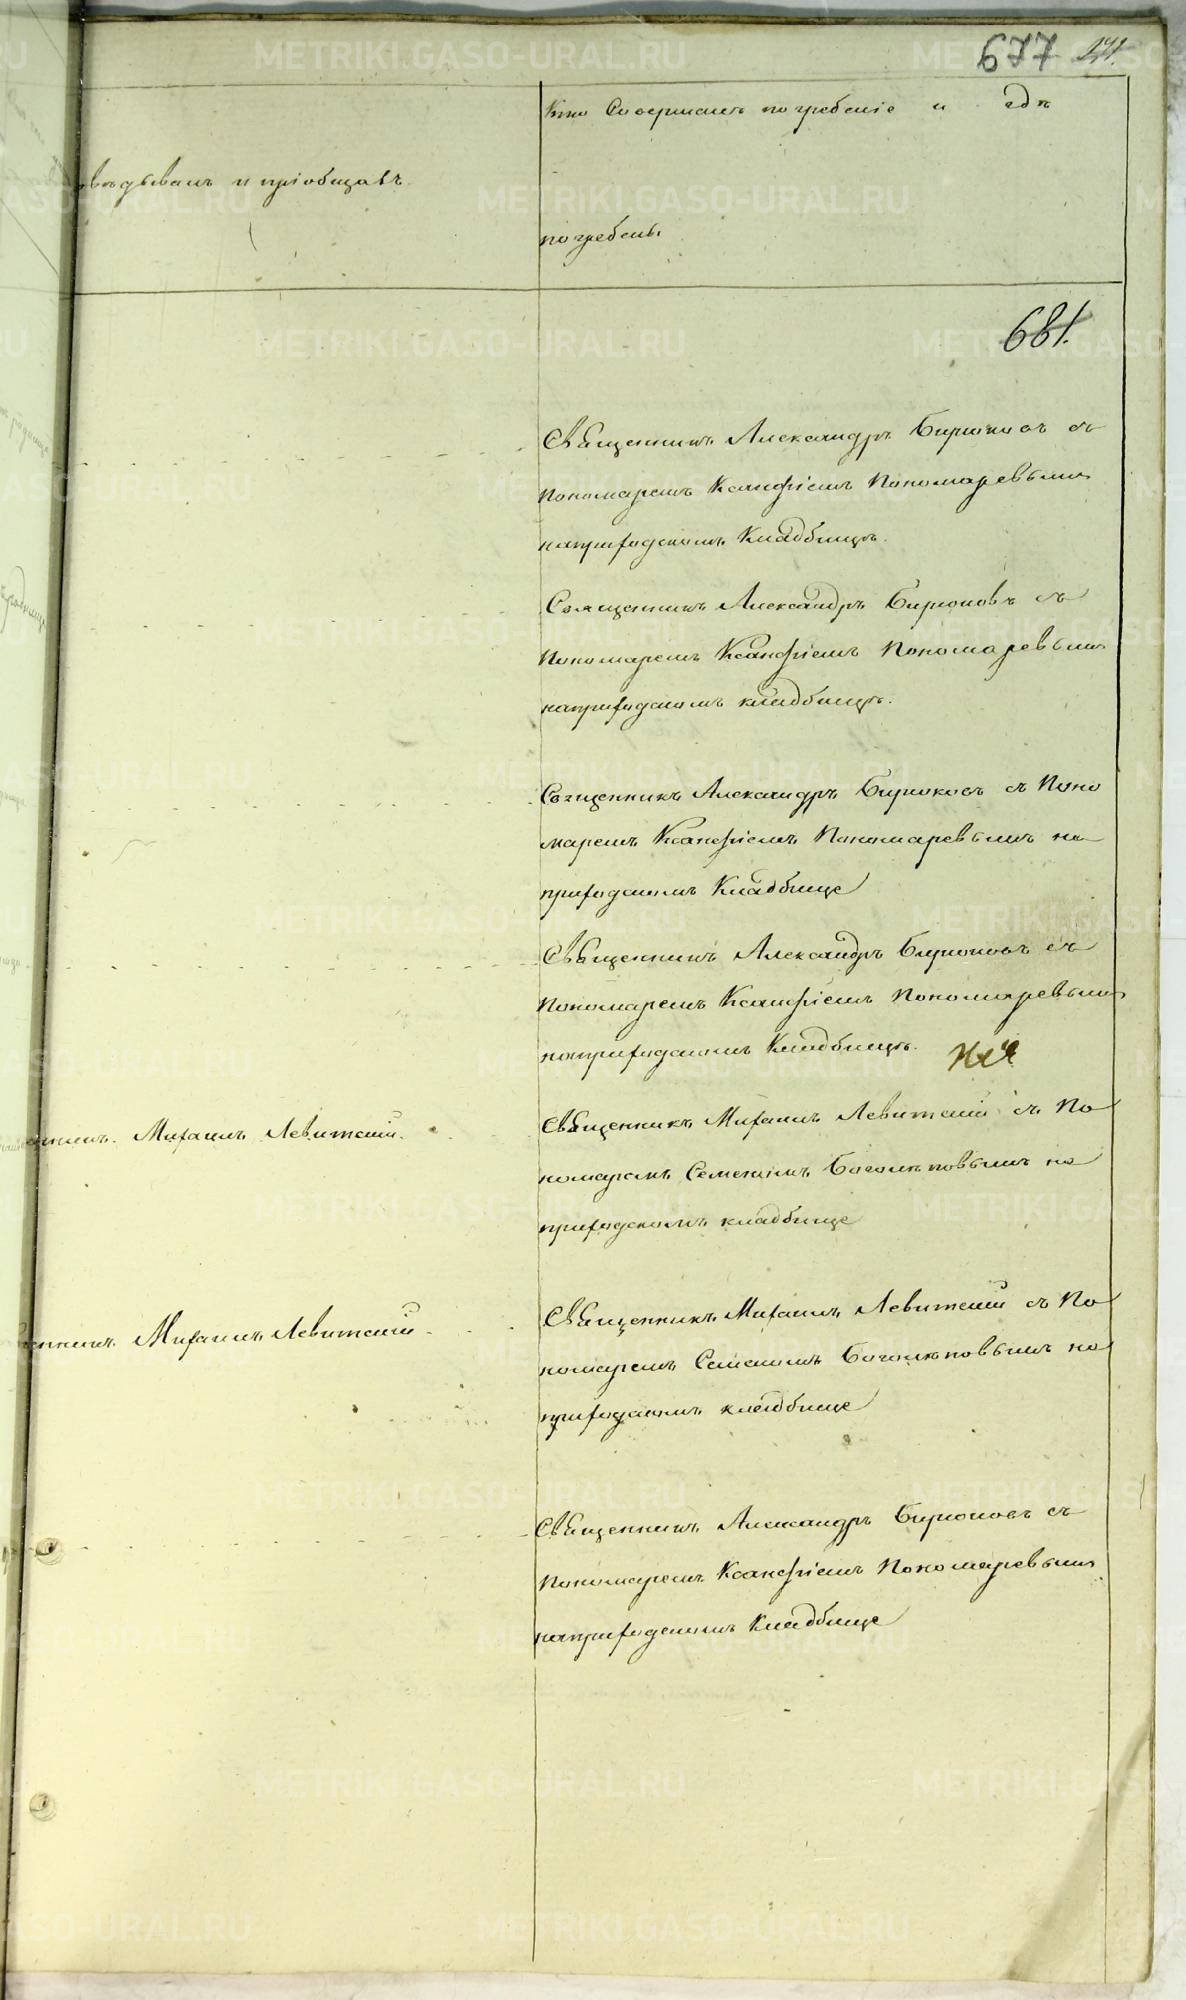 677
Кто Совершалъ погребеніе и гдѣ
вѣдывалъ и пріобщалъ
погребены
681.
Священникъ Александръ Бирюковъ съ
Пономаремъ Ксанфіемъ Пономаревымъ
наприходскомъ Кладбищѣ.
Священникъ Александръ Бирюковъ съ
Пономаремъ Ксанфіемъ Пономаревымъ
наприходскомъ кладбищѣ.
Священникъ Александръ Бирюковъ съ Поно
маремъ Ксанфіемъ Пономаревымъ на
приходскомъ Кладбище
Священникъ Александръ Бирюковъ съ
Пономаремъ Ксанфіемъ Пономаревымъ
наприходскомъ Кладбищѣ.
Михаилъ Левитскій.
Священникъ Михаилъ Левитскій съ По
номаремъ Семеномъ Боголюповымъ на
приходскомъ кладбище
Михаилъ Левитскій
Священникъ Михаилъ Левитскій съ По
номаремъ Семеномъ Боголюповымъ на
приходскомъ кладбище
Священникъ Александръ Бирюковъ съ
Пономаремъ Ксанфіемъ Пономаревымъ
наприходскомъ Кладбище
METRIKI.GASO-URAL.RU